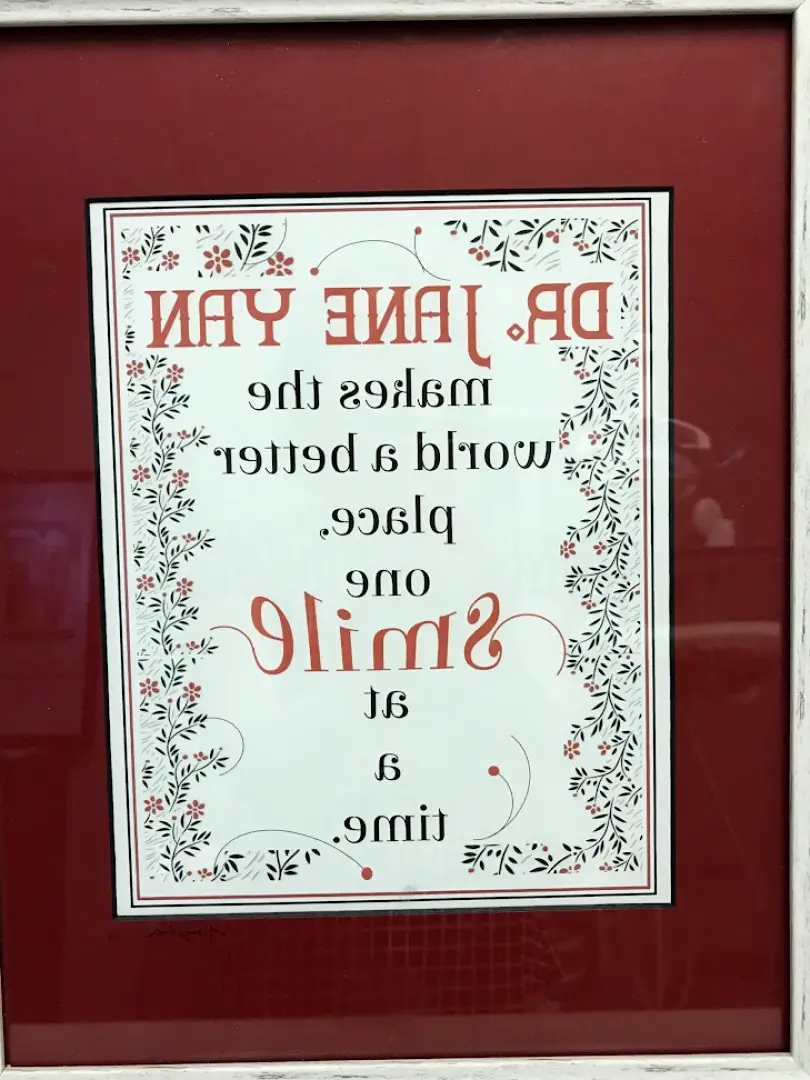 DR. JANE YAN
makes the
world a better
place,
one
smile
at
a
time.